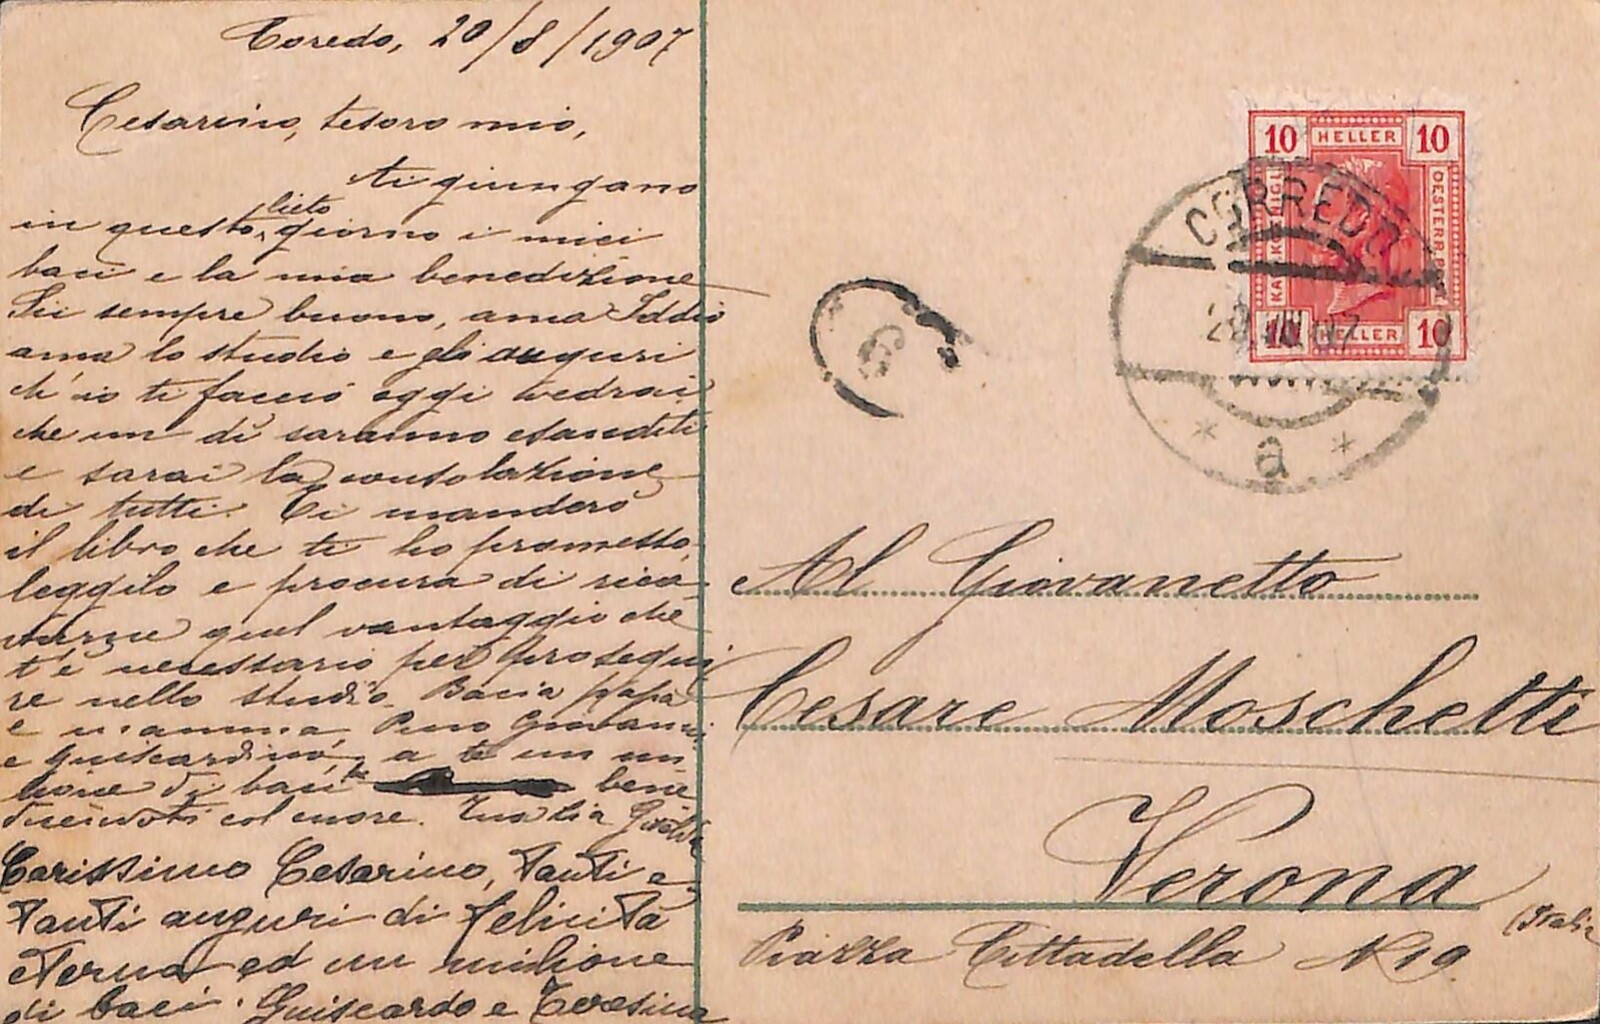 Coredo, 20/8/1907
Cesarino, tesoro mio,
ti giungano
in questo lieto giorno i miei
baci e la mia benedizione
Sii sempre buono, ama Iddio
ama lo studio e gli auguri
ch'io ti faccio oggi vedrai
che un dì saranno esauditi
e sarai la consolazione
di tutti. Ti manderò
il libro che ti ho promesso,
leggilo e procura di rica-
varne quel vantaggio che
t'è necessario per prosegui
re nello studio. Bacia papà
e mamma, Piero Giovanni
e Guiscardino, a te un mi
lione di baci bene
dicendoti col cuore. Tua zia
Carissimo Cesarino, Tanti e
Tanti auguri di felicità
eterna ed un milione
di baci. Guiscardo e Teresina
10 HELLER 10
KAIS. KOENIGL.
OESTERR. P
10 HELLER 10
CORREDO
a
Al Giovanetto
Cesare Moschetti
Verona
(Italia
Piazza Cittadella N 19